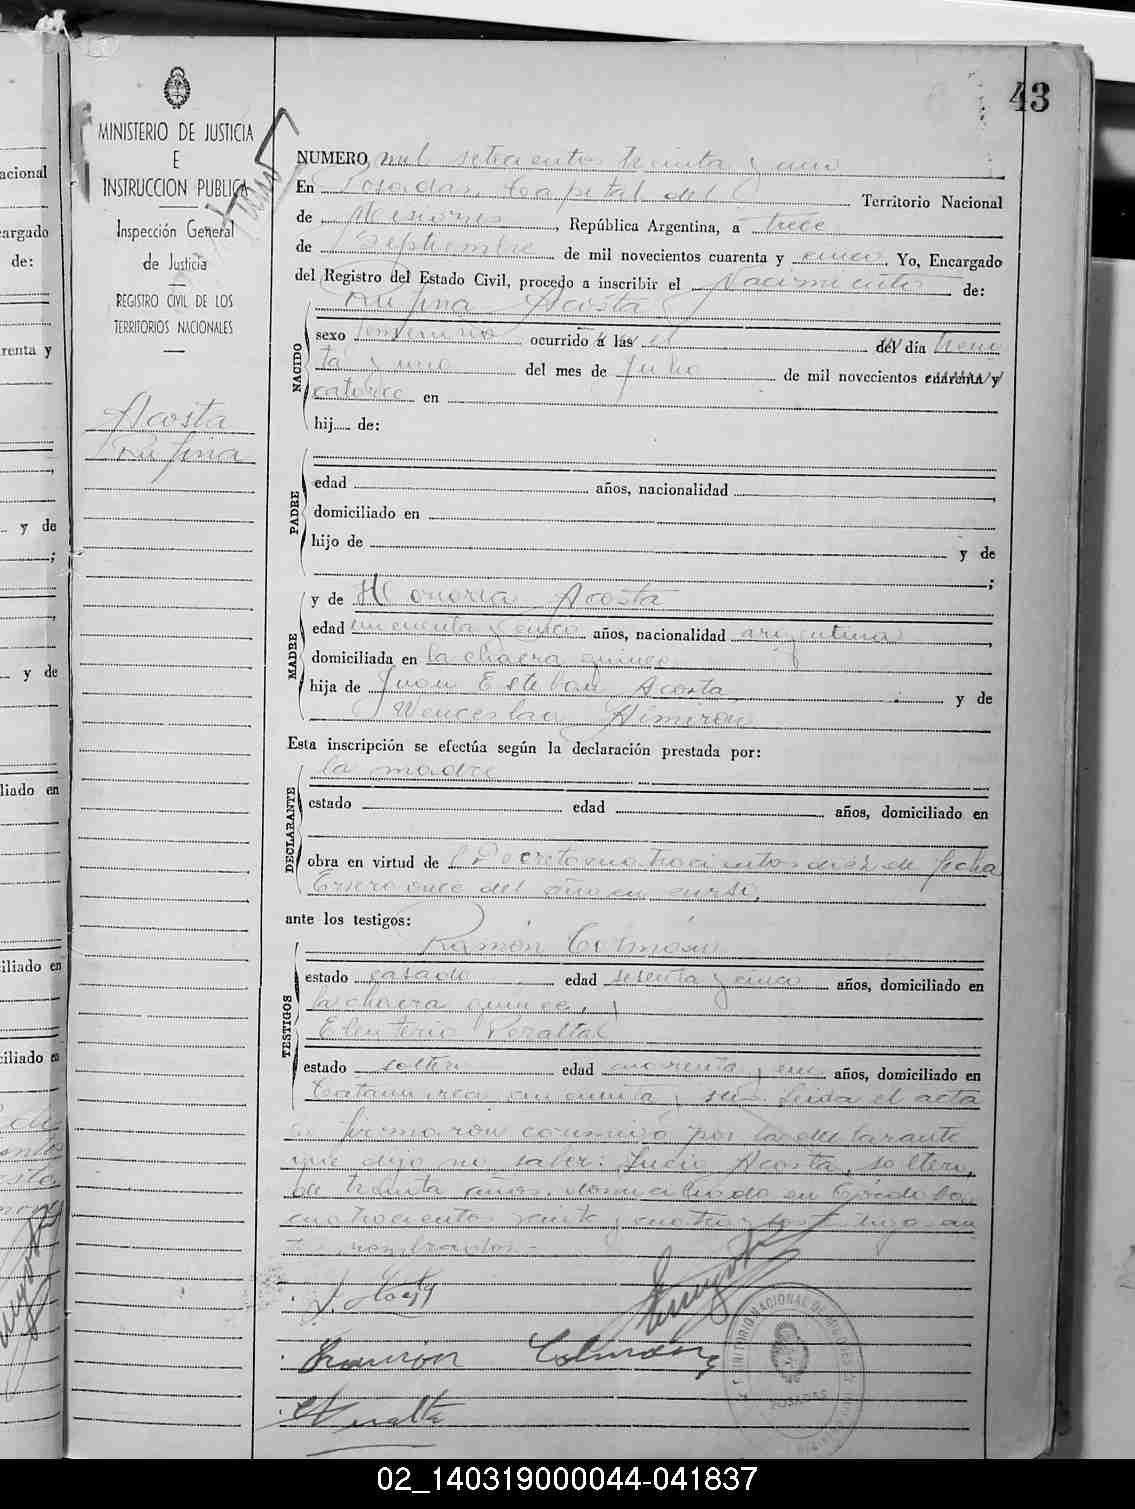 43
MINISTERIO DE JUSTICIA
E
INSTRUCCION PUBLICA
Inspección General
de Justicia
REGISTRO CIVIL DE LOS
TERRITORIOS NACIONALES
Acosta
Rufina
NUMERO mil setecientos treinta y uno
En Posadas, Capital del Territorio Nacional
de Misiones, República Argentina, a trece
de Septiembre de mil novecientos cuarenta y cinco. Yo, Encargado
del Registro del Estado Civil, procedo a inscribir el Nacimiento de:
Rufina Acosta
NACIDO
sexo femenino ocurrido a las el del día trein
ta y uno del mes de Julio de mil novecientos cuarenta y
catorce en
hij de:
PADRE
edad años, nacionalidad
domiciliado en
hijo de y de
;
MADRE
y de Honoria Acosta
edad cincuenta y cinco años, nacionalidad argentina
domiciliada en la chacra quince
hija de Juan Esteban Acosta y de
Wenceslaa
Esta inscripción se efectúa según la declaración prestada por:
la madre
DECLARANTE
estado edad años, domiciliado en
obra en virtud de l Decreto cuatrocientos diez de fecha
Enero once del año en curso.
ante los testigos:
Ramón Colmán
TESTIGOS
estado casado edad sesenta y cinco años, domiciliado en
la chacra quince,
Eleuterio Peralta
estado soltero edad cuarenta y un años, domiciliado en
Catamarca cincuenta y seis. Leida el acta
la firmaron conmigo por la declarante
que dijo no saber: Lucio Acosta, soltero,
de treinta años, domiciliado en Córdoba
cuatrocientos veinte y cuatro y los testigos an
tes nombrados.-
L. Acosta
Ramón Colmán
E Peralta
POSADAS
acional
argado
de:
renta y
y de
;
y de
liado en
iliado en
iliado en
02_140319000044-041837